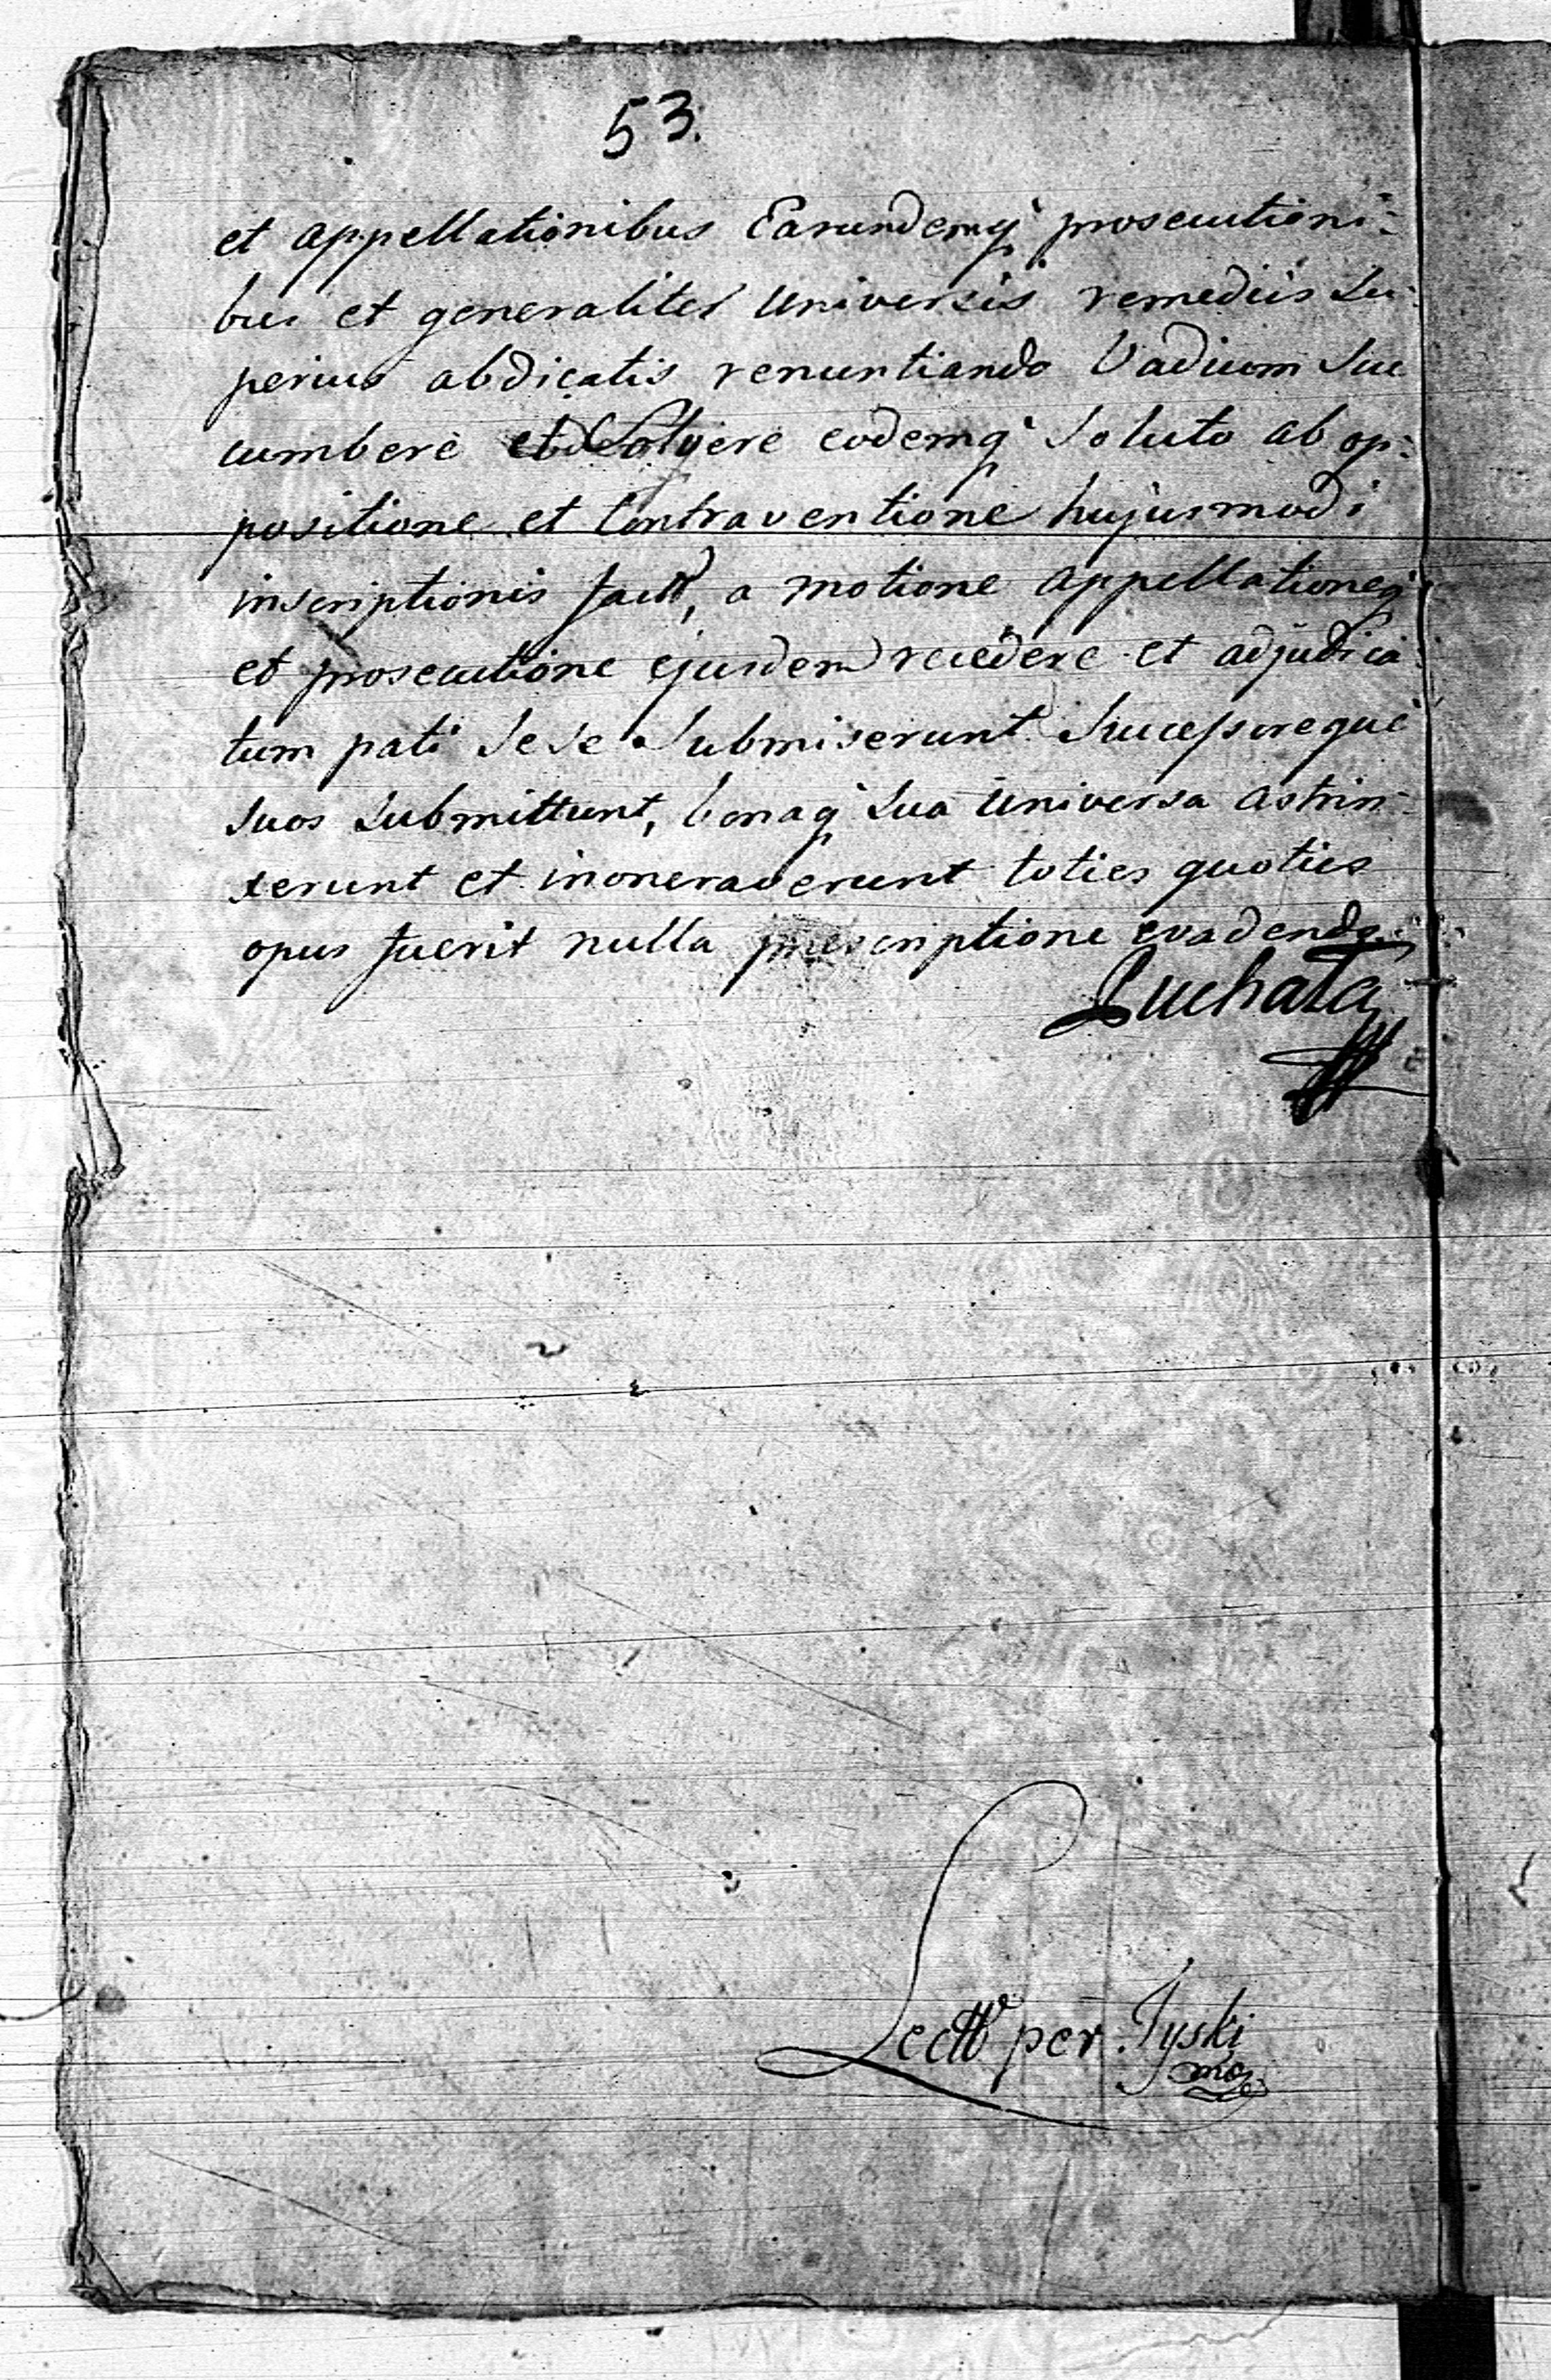 53.
et appellationibus Earundemq prosecutioni-
bus et generaliter Universis remediis Su-
perius abdicatis renuntiando Vadium Suc
cumbere et Solvere eodemq Soluto ab op-
positione et Contraventione hujusmodi
inscriptionis fact, a motione appellationeq
et prosecutione ejusdem recedere et adjudica
tum pati Sese Submiserunt Successoreque
Suos Submittunt, bonaq Sua Universa astrin-
xerunt et inoneraverunt toties quoties
opus fuerit nulla prescriptione evadendo.
Suchata
Lectt per Tyski
mp